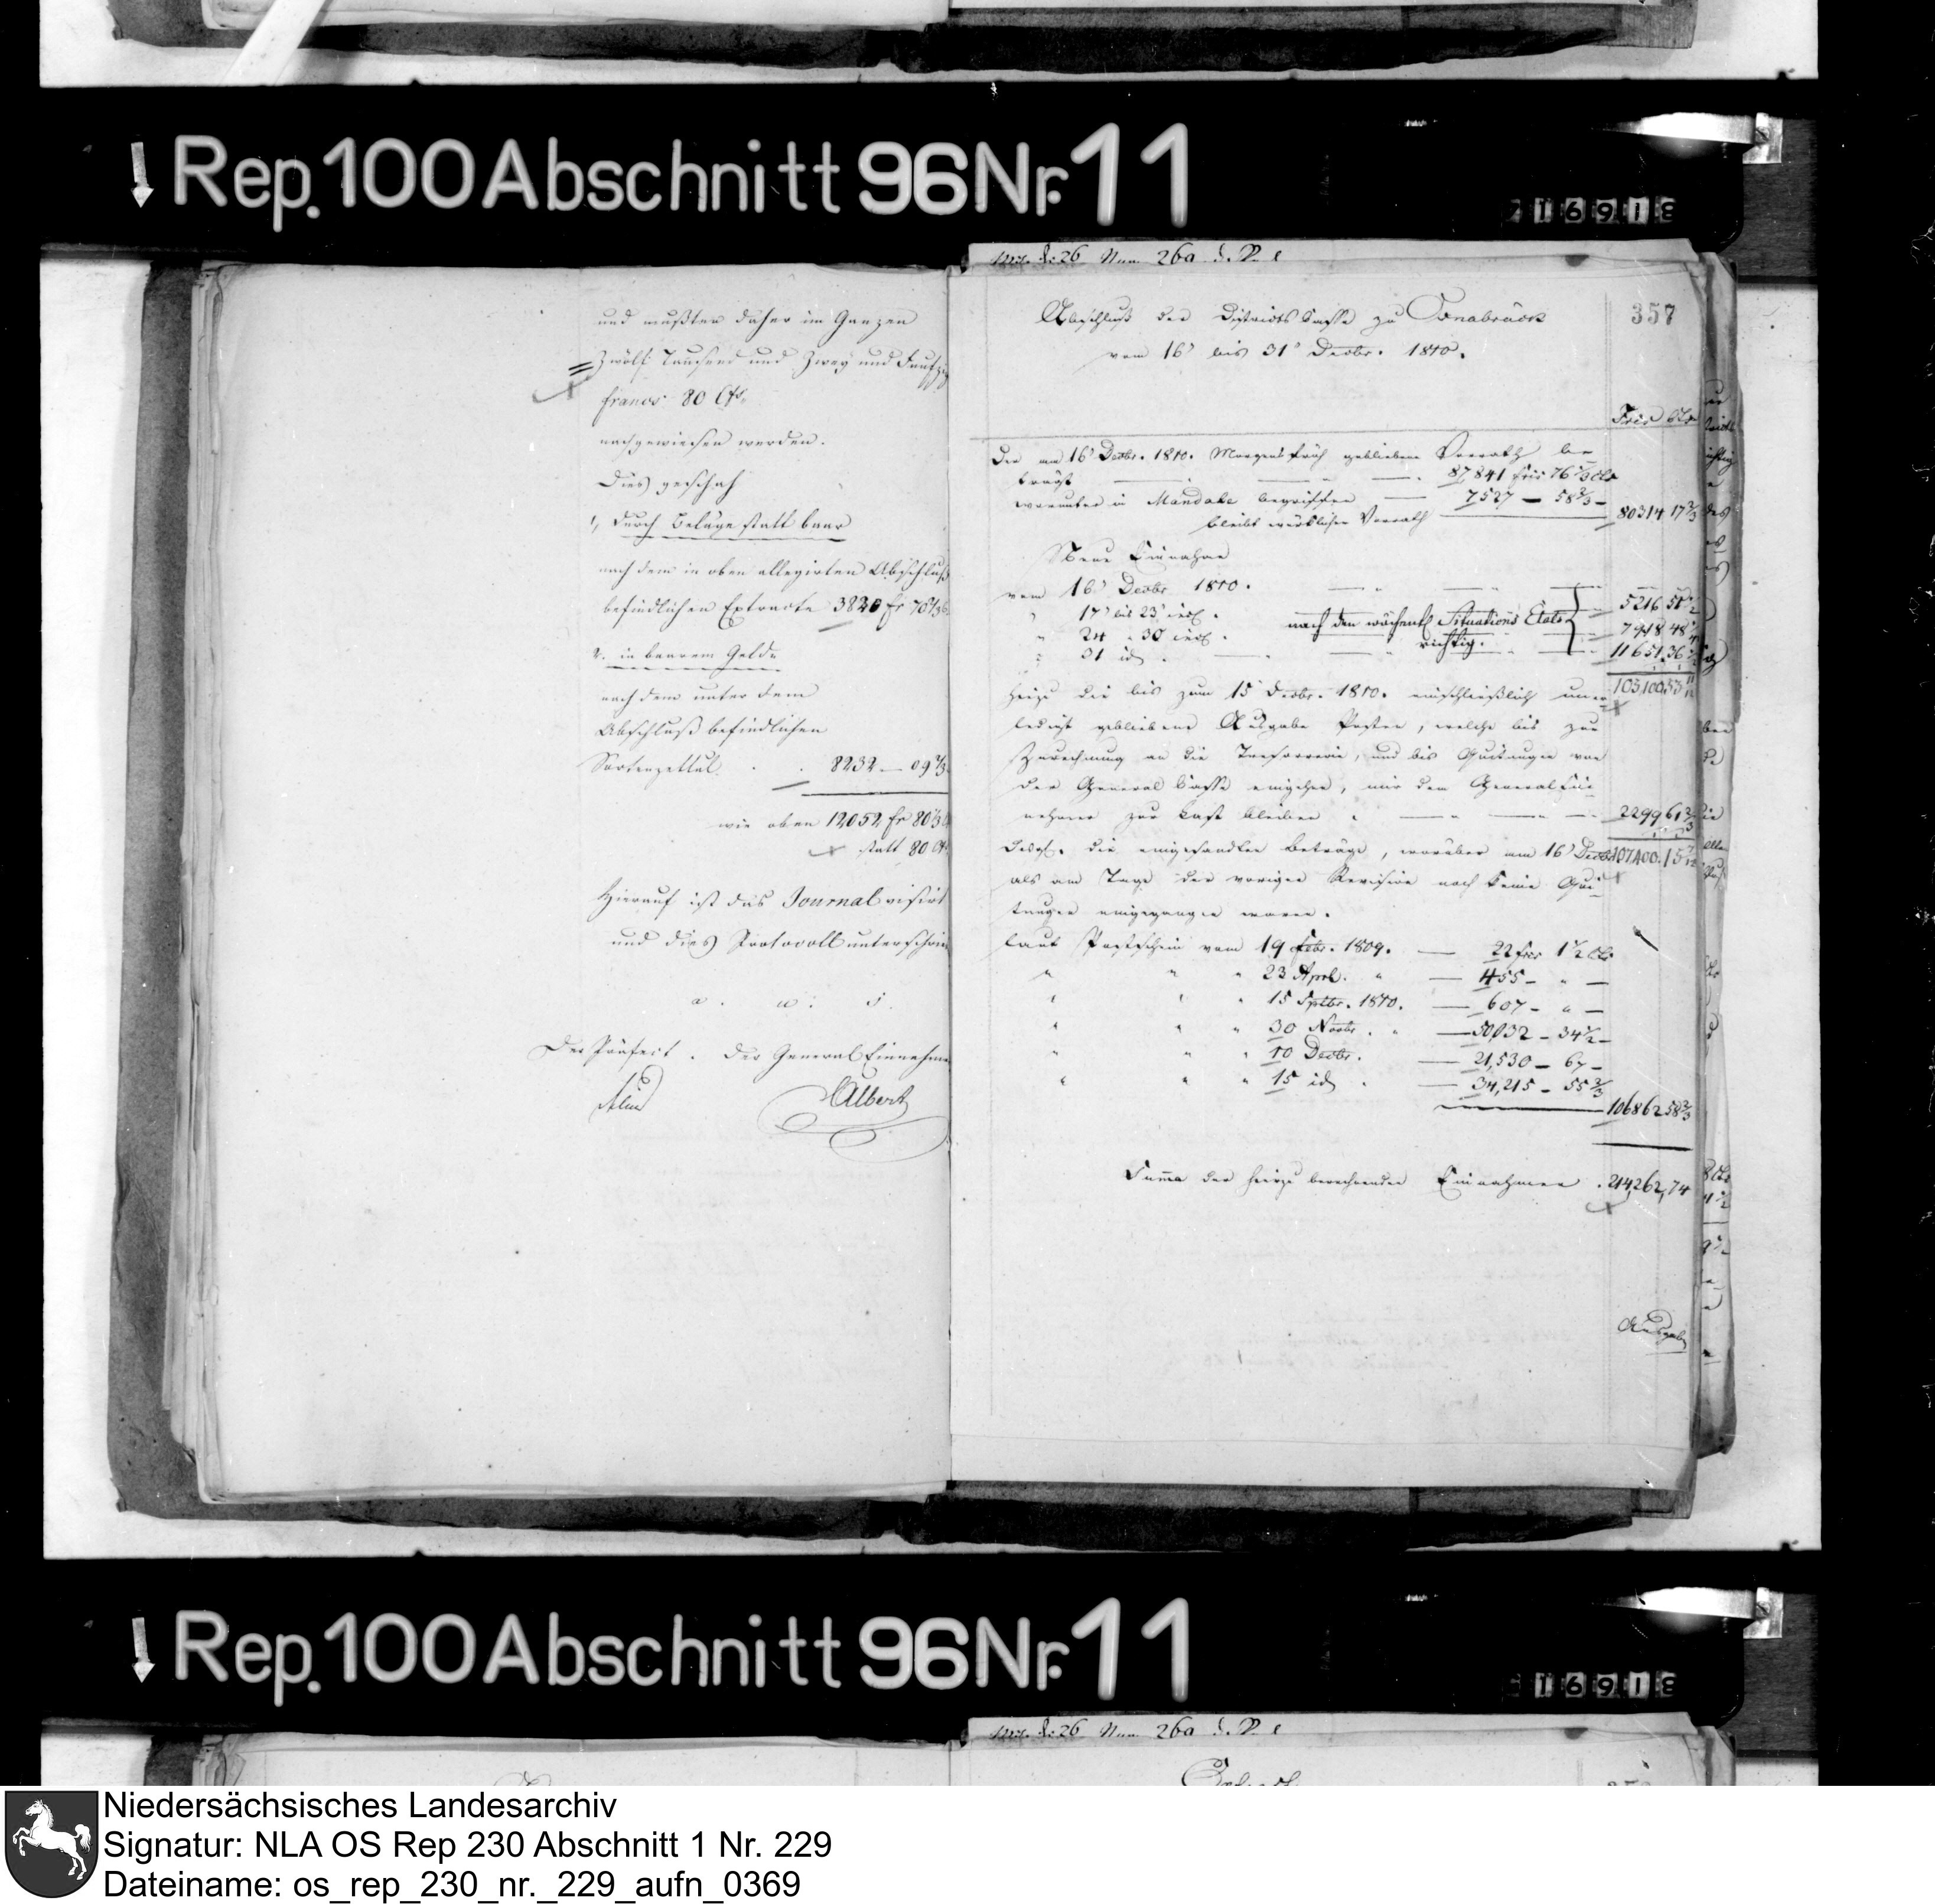 Rep. 100 Abschnitt 96 Nr. 11
16918
26a
und mußten daher im Ganzen
Zwölf Tausend und Zwey und Funfzig
francs 80 Cts.
nachgewiesen werden.
Dies geschah
1, durch Beläge statt baar
nach dem in oben allegirten Abschluß
befindlichen Extracte 3820 fr 70 2/3 c
2. in baarem Gelde
nach dem unter dem
Abschluß befindlichen
Sortenzettul . . 8232 — 09 2/3
wie oben 12052 fr 80 1/3 c
statt 80 Ct
Hierauf ist das Journal visirt
und dies Protocoll unterschrieben
a. u. s.
Der Präfect. Der General Einnehmer
Albert
357
Abschluß der Districts Casse zu Osnabrück
vom 16' bis 31' Decbr. 1810.
Frcs Cts
Der am 16' Decbr. 1810. Morgens früh gebliebene Vorrath be-
trägt — 87841 frcs 76 1/3 Cts
worunter in Mandate begriffen — 7527 — 58 2/3 —
bleibt würklicher Vorrath 80314 17 2/3
Neue Einnahme
vom 16' Decbr. 1810. 5216 51 1/2
" 17' bis 23' incl. nach den wöchentl. Situations Etats
" 24 " 30 incl. richtig. 7918 48
" 31 id. 11651 36
Hiezu die bis zum 15 Decbr. 1810. einschließlich uner-
ledigt gebliebene Ausgabe Posten, welche bis zur
Zurechnung an die Tresorerie, und bis Quitungen von
der General Casse eingehen, mir dem General Ein-
nehmer zur Last bleiben " — 2299 61 2/3
Desgl. die eingesandten Beträge, worüber am 16' Decbr. 107400. 15
als am Tage der vorigen Revision noch keine Qui-
tungen eingegangen waren.
laut Postschein vom 19 Febr. 1809. — 22 frcs 1 1/2 Cts
" " " 23 April. " — 455 — " —
" " " 15 Sptbr. 1810. — 607 — " —
" " " 30 Novbr. " — 50032 — 34 1/2 —
" " " 10 Decbr. — 21,530 — 67 —
" " " 15 id. — 34,215 — 55 2/3
106862 58 2/3
Summa der hierzu berechnenden Einnahmen . 214,262,74
Ausgabe
Rep. 100 Abschnitt 96 Nr. 11
16918
26a
Niedersächsisches Landesarchiv
Signatur: NLA OS Rep 230 Abschnitt 1 Nr. 229
Dateiname: os_rep_230_nr._229_aufn_0369